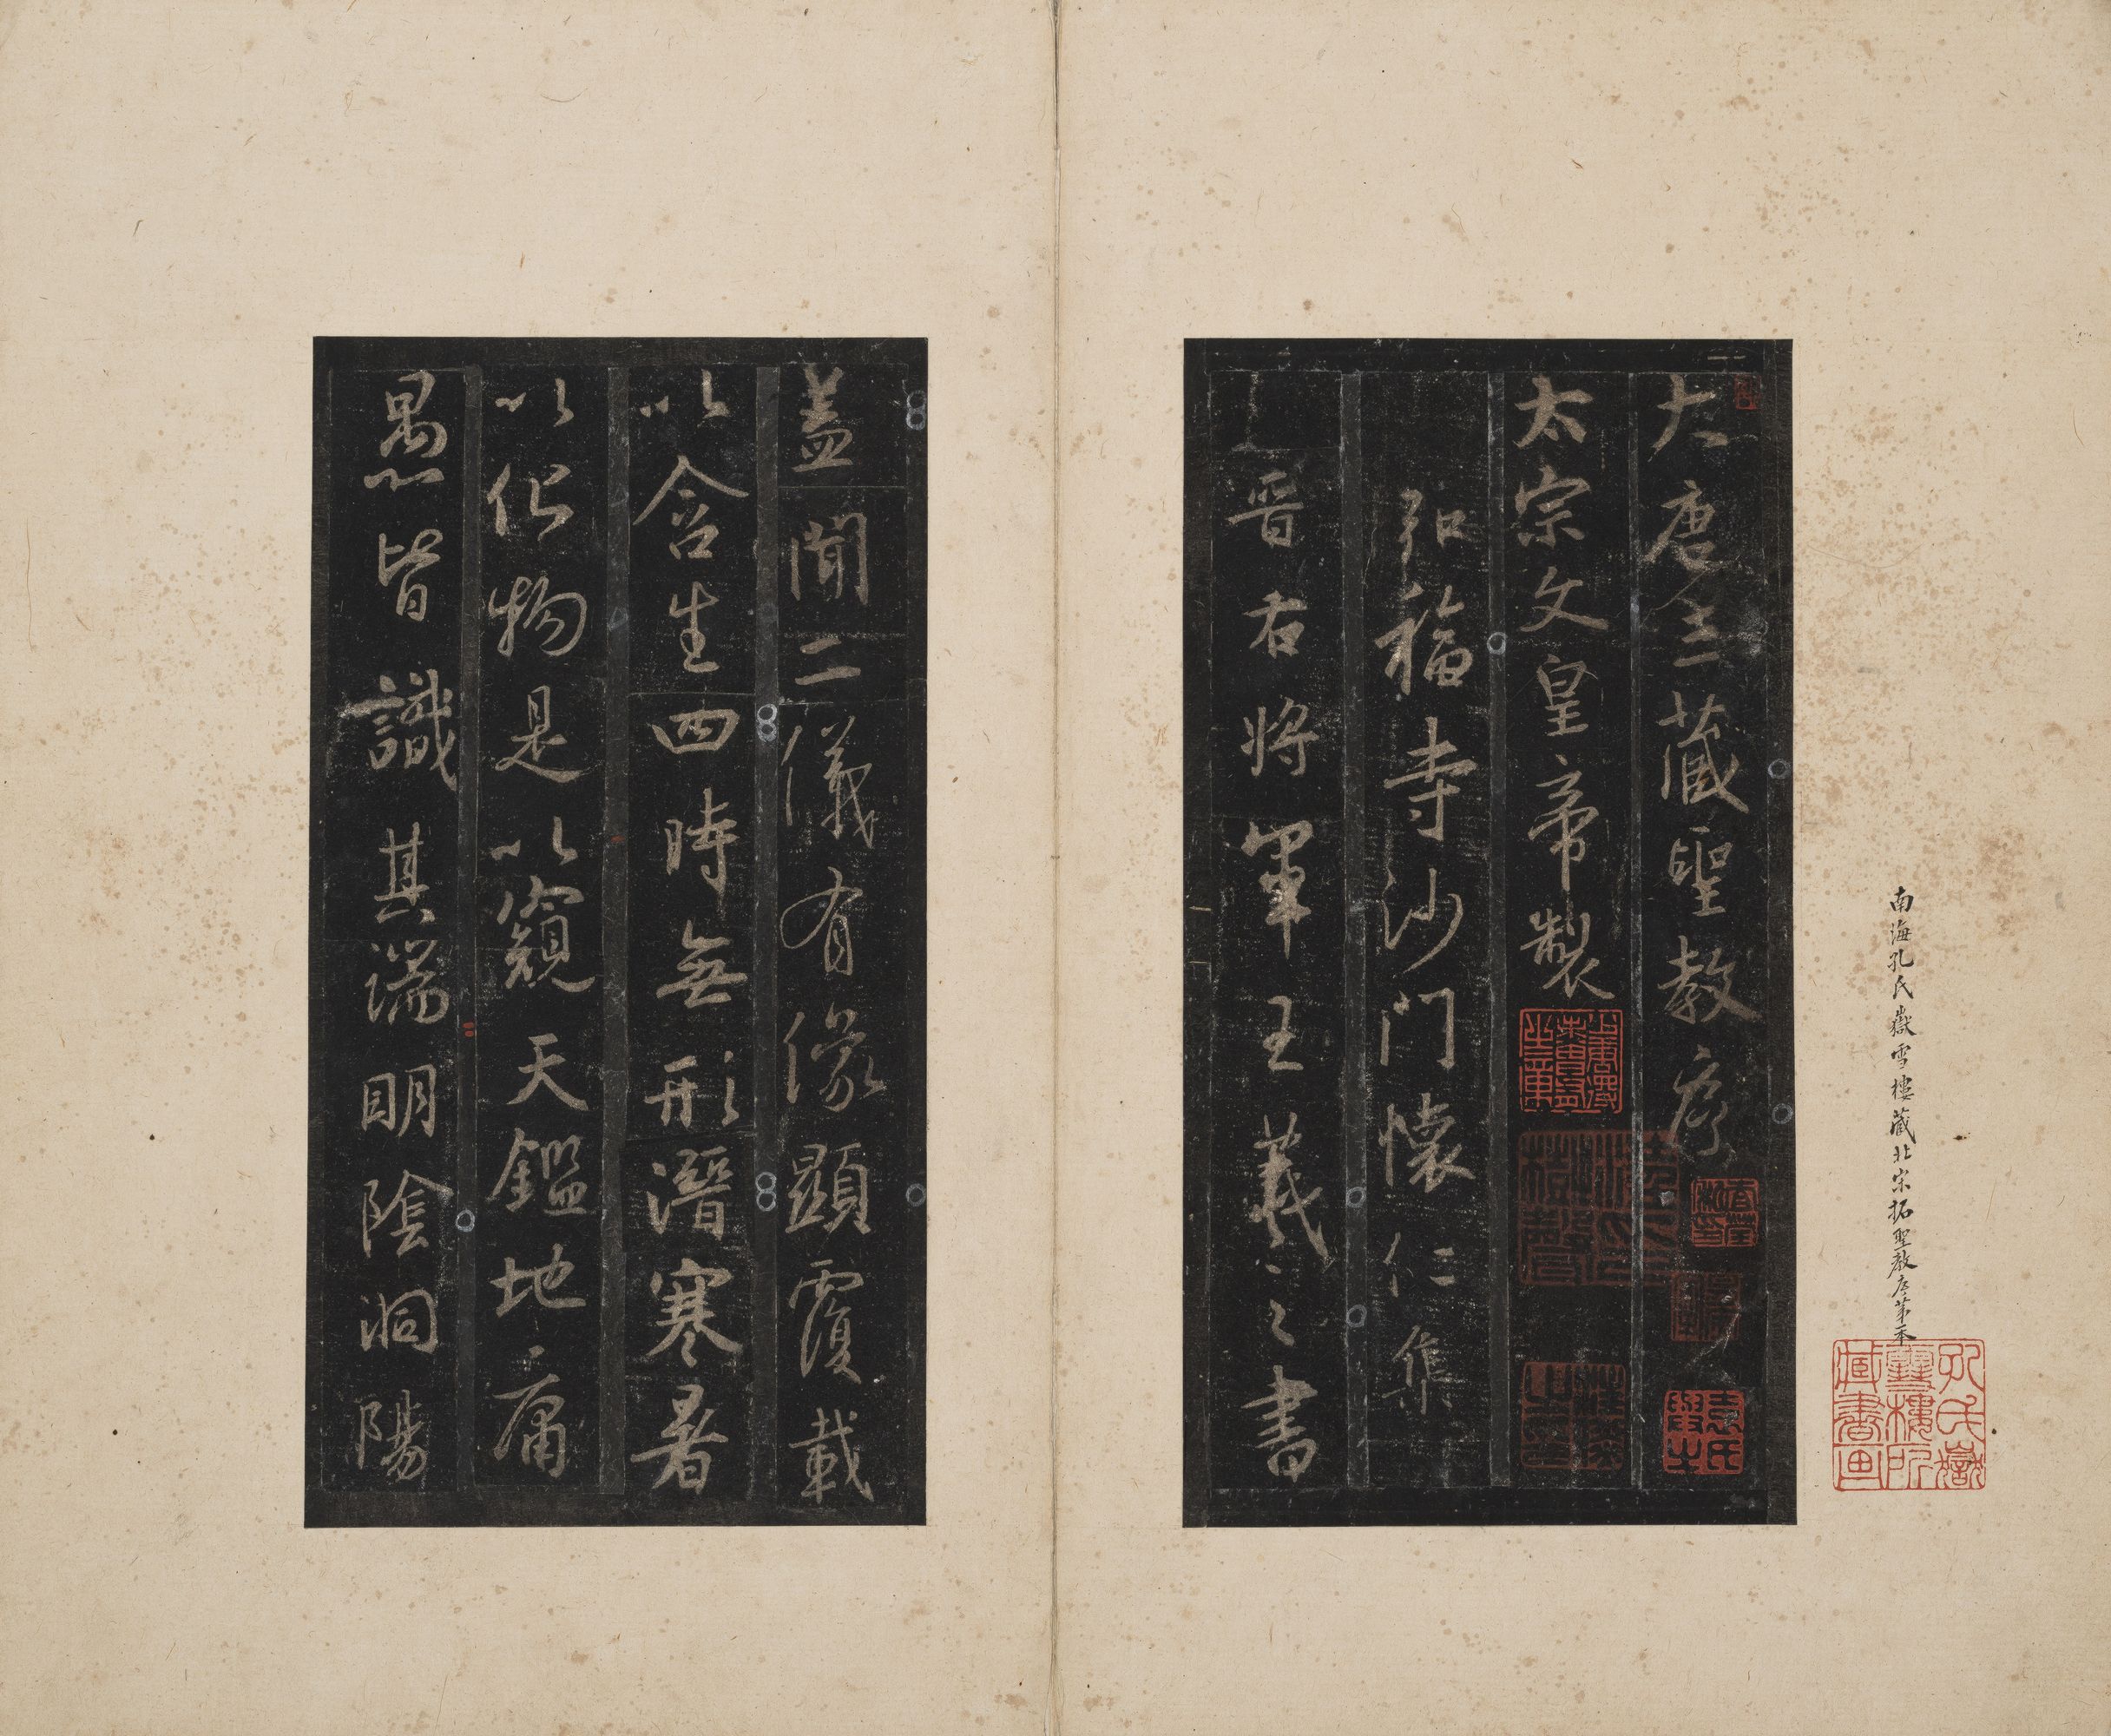 南海孔氏嶽雪樓藏北宋拓聖教序第一本
孔氏嶽雪樓所藏書畫
大唐三藏聖教序
太宗文皇帝製
弘福寺沙門懷仁集
晋右將軍王羲之書
蓋聞二儀有像顯覆載
以含生四時無形潛寒暑
以化物是以窺天鑑地庸
愚皆識其端明陰洞陽